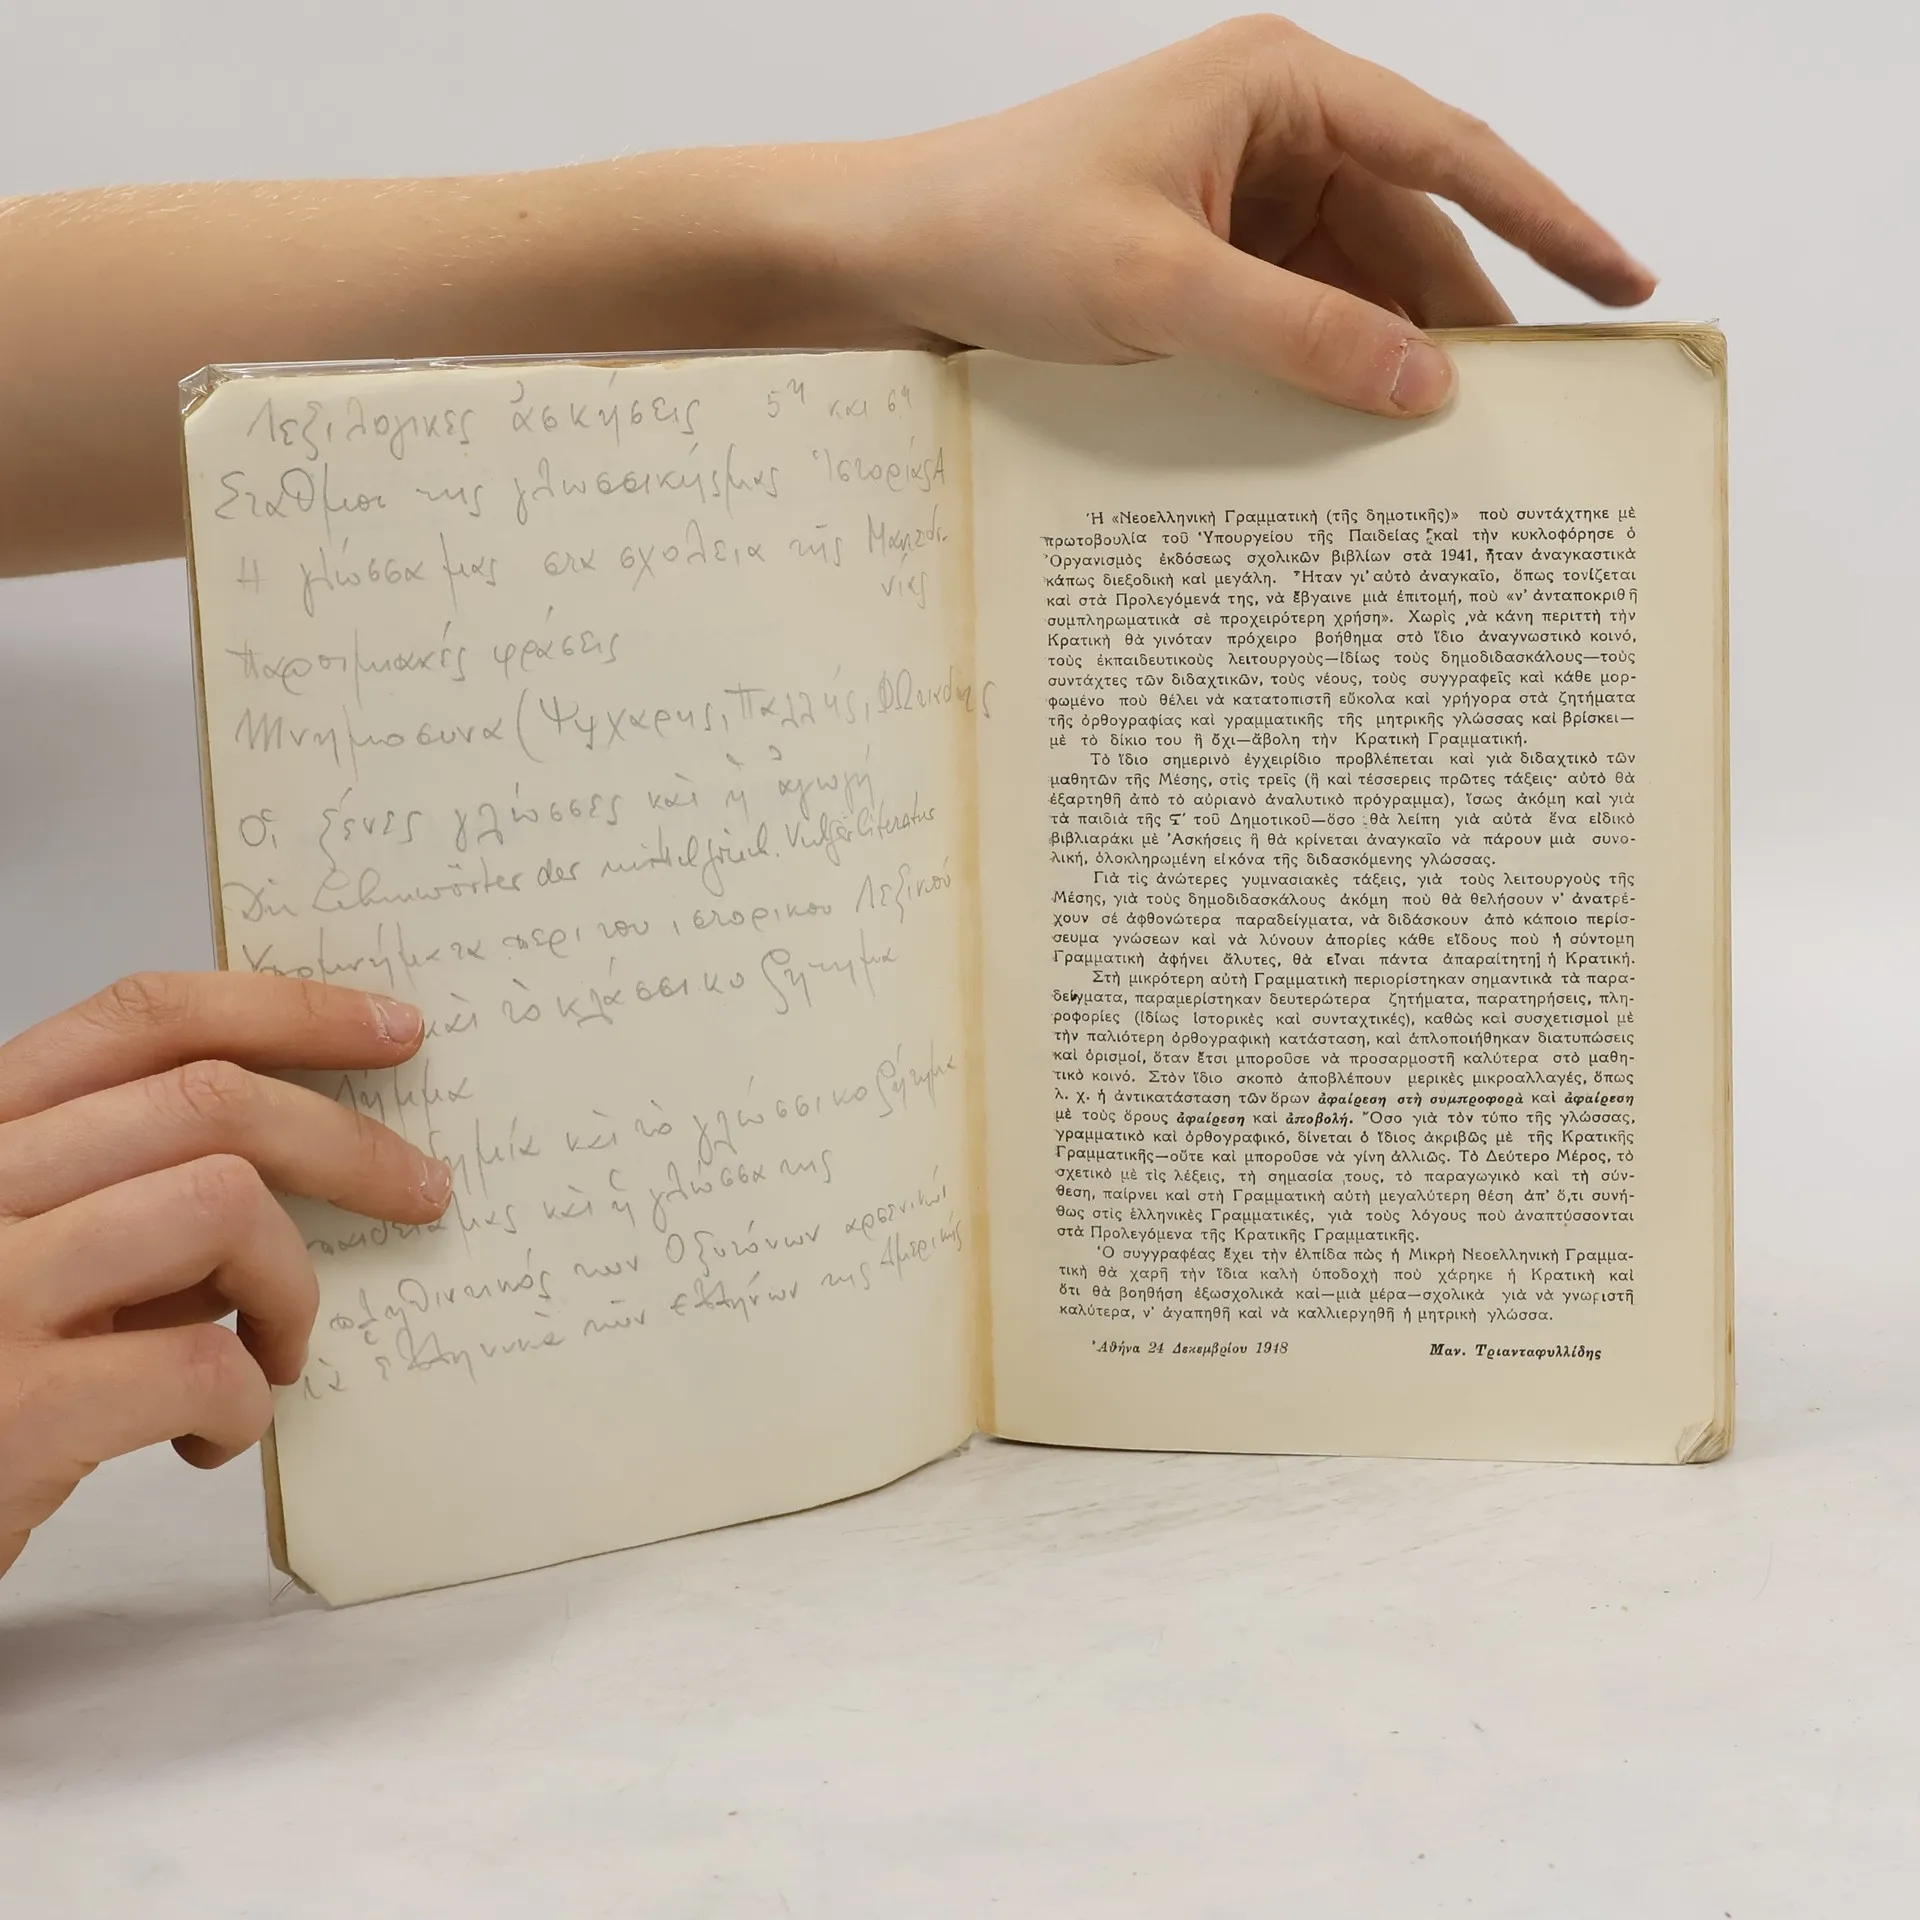 Λεξιλογικες ἀσκήσεις 5η και 6η
Σταθμοι της γλωσσικήςμας Ἱστορίας Α
Η γλώσσα μας στα σχολεια τῆς Μακεδο-
νίας
παροιμιακές φράσεις
Μνημοσυνα (Ψυχαρης, Παλλής, Φωτιαδης
Οἱ ξένες γλώσσες καὶ ἡ ἀγωγή
Die Lehnwörter der mittelgriech. Vulgärliteratur
περι του ιστορικου Λεξικού
καὶ τὸ κλάσσικο ζητημα
καὶ τὸ γλώσσικο ζήτημα
μας καὶ ἡ γλώσσα της
πληθυντικός των Οξυτόνων αρσενικών
τὰ ἑλληνικὰ τῶν ελλήνων της Αμερικής
Ἡ «Νεοελληνικὴ Γραμματικὴ (τῆς δημοτικῆς)» ποὺ συντάχτηκε μὲ
πρωτοβουλία τοῦ Ὑπουργείου τῆς Παιδείας καὶ τὴν κυκλοφόρησε ὁ
Ὀργανισμὸς ἐκδόσεως σχολικῶν βιβλίων στὰ 1941, ἦταν ἀναγκαστικὰ
κάπως διεξοδικὴ καὶ μεγάλη. Ἦταν γι' αὐτὸ ἀναγκαῖο, ὅπως τονίζεται
καὶ στὰ Προλεγόμενά της, νὰ ἔβγαινε μιὰ ἐπιτομή, ποὺ «ν' ἀνταποκριθῆ
συμπληρωματικὰ σὲ προχειρότερη χρήση». Χωρὶς νὰ κάνη περιττὴ τὴν
Κρατικὴ θὰ γινόταν πρόχειρο βοήθημα στὸ ἴδιο ἀναγνωστικὸ κοινό,
τοὺς ἐκπαιδευτικοὺς λειτουργοὺς—ἰδίως τοὺς δημοδιδασκάλους—τοὺς
συντάχτες τῶν διδαχτικῶν, τοὺς νέους, τοὺς συγγραφεῖς καὶ κάθε μορ-
φωμένο ποὺ θέλει νὰ κατατοπιστῆ εὔκολα καὶ γρήγορα στὰ ζητήματα
τῆς ὀρθογραφίας καὶ γραμματικῆς τῆς μητρικῆς γλώσσας καὶ βρίσκει—
μὲ τὸ δίκιο του ἢ ὄχι—ἄβολη τὴν Κρατικὴ Γραμματική.
Τὸ ἴδιο σημερινὸ ἐγχειρίδιο προβλέπεται καὶ γιὰ διδαχτικὸ τῶν
μαθητῶν τῆς Μέσης, στὶς τρεῖς (ἢ καὶ τέσσερεις πρῶτες τάξεις· αὐτὸ θὰ
ἐξαρτηθῆ ἀπὸ τὸ αὐριανὸ ἀναλυτικὸ πρόγραμμα), ἴσως ἀκόμη καὶ γιὰ
τὰ παιδιὰ τῆς ϛ' τοῦ Δημοτικοῦ—ὅσο θὰ λείπη γιὰ αὐτὰ ἕνα εἰδικὸ
βιβλιαράκι μὲ Ἀσκήσεις ἢ θὰ κρίνεται ἀναγκαῖο νὰ πάρουν μιὰ συνο-
λική, ὁλοκληρωμένη εἰκόνα τῆς διδασκόμενης γλώσσας.
Γιὰ τὶς ἀνώτερες γυμνασιακὲς τάξεις, γιὰ τοὺς λειτουργοὺς τῆς
Μέσης, γιὰ τοὺς δημοδιδασκάλους ἀκόμη ποὺ θὰ θελήσουν ν' ἀνατρέ-
χουν σέ ἀφθονώτερα παραδείγματα, νὰ διδάσκουν ἀπὸ κάποιο περίσ-
σευμα γνώσεων καὶ νὰ λύνουν ἀπορίες κάθε εἴδους ποὺ ἡ σύντομη
Γραμματικὴ ἀφήνει ἄλυτες, θὰ εἶναι πάντα ἀπαραίτητη ἡ Κρατική.
Στὴ μικρότερη αὐτὴ Γραμματικὴ περιορίστηκαν σημαντικὰ τὰ παρα-
δείγματα, παραμερίστηκαν δευτερώτερα ζητήματα, παρατηρήσεις, πλη-
ροφορίες (ἰδίως ἱστορικὲς καὶ συνταχτικές), καθὼς καὶ συσχετισμοὶ μὲ
τὴν παλιότερη ὀρθογραφικὴ κατάσταση, καὶ ἁπλοποιήθηκαν διατυπώσεις
καὶ ὁρισμοί, ὅταν ἔτσι μποροῦσε νὰ προσαρμοστῆ καλύτερα στὸ μαθη-
τικὸ κοινό. Στὸν ἴδιο σκοπὸ ἀποβλέπουν μερικὲς μικροαλλαγές, ὅπως
λ. χ. ἡ ἀντικατάσταση τῶν ὅρων ἀφαίρεση στὴ συμπροφορὰ καὶ ἀφαίρεση
μὲ τοὺς ὅρους ἀφαίρεση καὶ ἀποβολή. Ὅσο γιὰ τὸν τύπο τῆς γλώσσας,
γραμματικὸ καὶ ὀρθογραφικό, δίνεται ὁ ἴδιος ἀκριβῶς μὲ τῆς Κρατικῆς
Γραμματικῆς—οὔτε καὶ μποροῦσε νὰ γίνη ἀλλιῶς. Τὸ Δεύτερο Μέρος, τὸ
σχετικὸ μὲ τὶς λέξεις, τὴ σημασία τους, τὸ παραγωγικὸ καὶ τὴ σύν-
θεση, παίρνει καὶ στὴ Γραμματικὴ αὐτὴ μεγαλύτερη θέση ἀπ' ὅ,τι συνή-
θως στὶς ἑλληνικὲς Γραμματικές, γιὰ τοὺς λόγους ποὺ ἀναπτύσσονται
στὰ Προλεγόμενα τῆς Κρατικῆς Γραμματικῆς.
Ὁ συγγραφέας ἔχει τὴν ἐλπίδα πὼς ἡ Μικρὴ Νεοελληνικὴ Γραμμα-
τικὴ θὰ χαρῆ τὴν ἴδια καλὴ ὑποδοχὴ ποὺ χάρηκε ἡ Κρατικὴ καὶ
ὅτι θὰ βοηθήση ἐξωσχολικὰ καὶ—μιὰ μέρα—σχολικὰ γιὰ νὰ γνωριστῆ
καλύτερα, ν' ἀγαπηθῆ καὶ νὰ καλλιεργηθῆ ἡ μητρικὴ γλώσσα.
Ἀθήνα 24 Δεκεμβρίου 1948 Μαν. Τριανταφυλλίδης